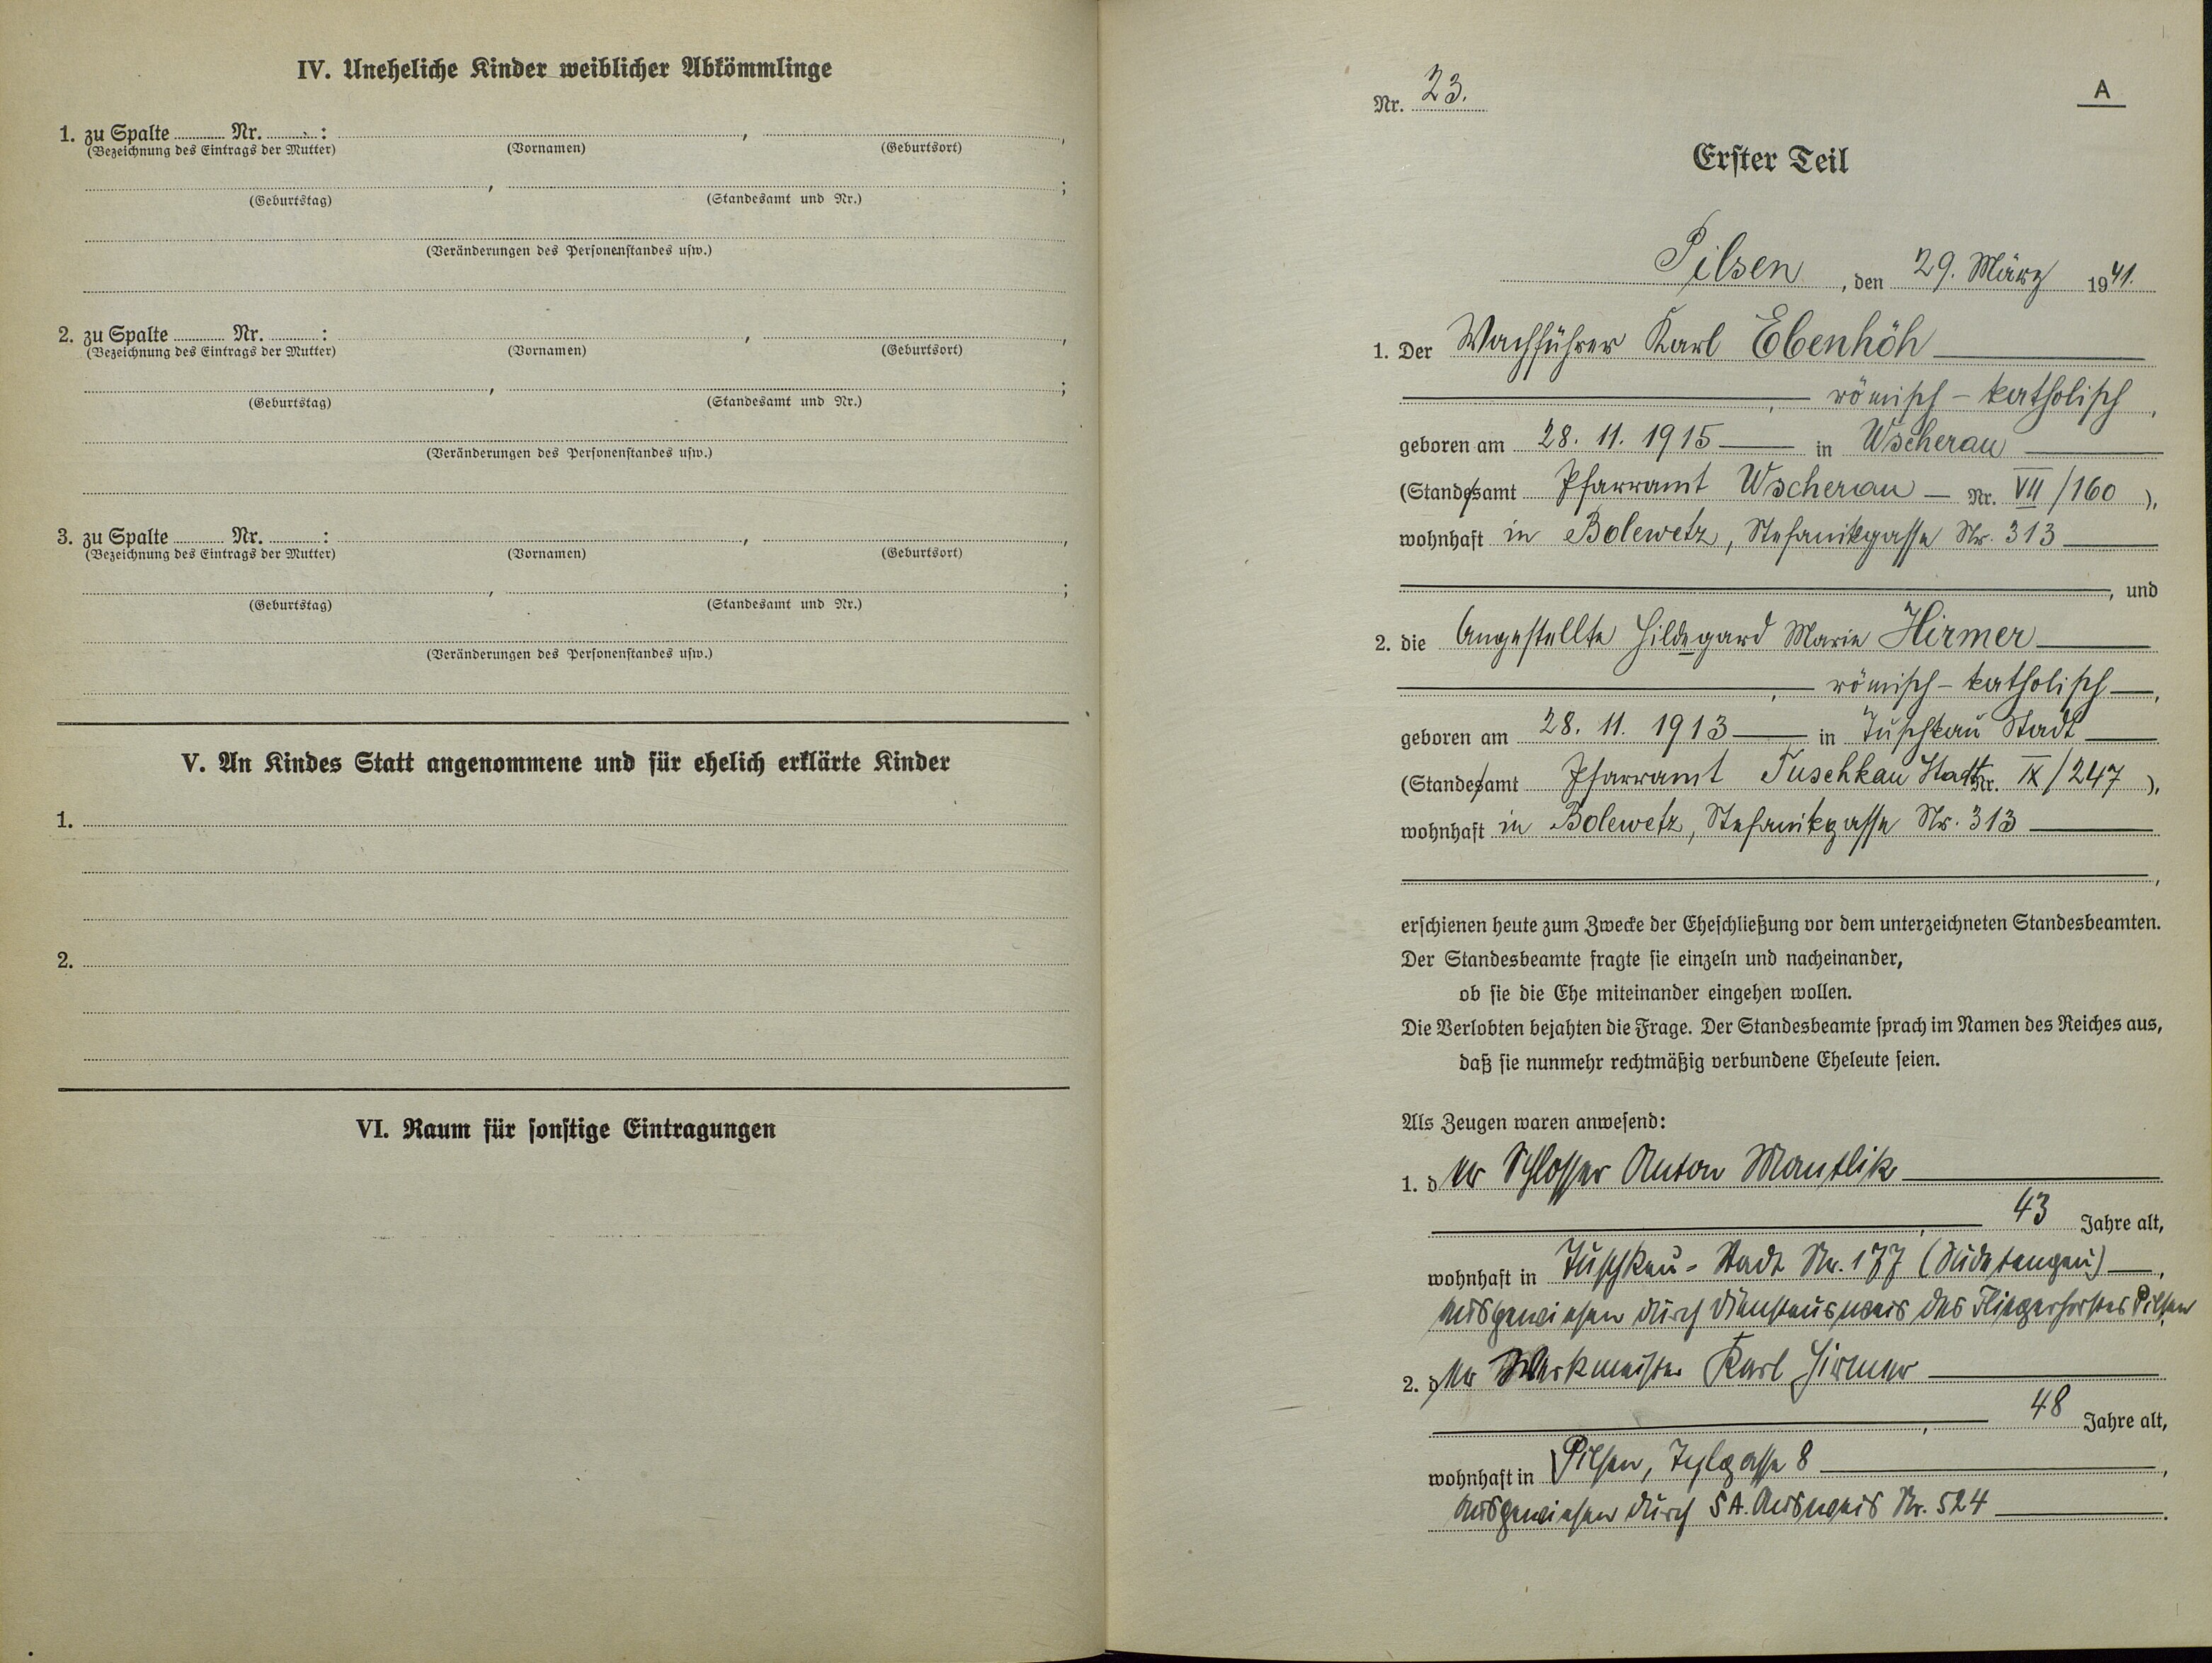 IV. Uneheliche Kinder weiblicher Abkömmlinge
1. zu Spalte ........ Nr. ........ : , ,
(Bezeichnung des Eintrags der Mutter) (Vornamen) (Geburtsort)
, ;
(Geburtstag) (Standesamt und Nr.)
(Veränderungen des Personenstandes usw.)
2. zu Spalte ........ Nr. ........ : , ,
(Bezeichnung des Eintrags der Mutter) (Vornamen) (Geburtsort)
, ;
(Geburtstag) (Standesamt und Nr.)
(Veränderungen des Personenstandes usw.)
3. zu Spalte ........ Nr. ........ : , ,
(Bezeichnung des Eintrags der Mutter) (Vornamen) (Geburtsort)
, ;
(Geburtstag) (Standesamt und Nr.)
(Veränderungen des Personenstandes usw.)
V. An Kindes Statt angenommene und für ehelich erklärte Kinder
1.
2.
VI. Raum für sonstige Eintragungen
Nr. 23.
A
Erster Teil
Pilsen, den 29. März 1941.
1. Der Wachführer Karl Ebenhöh
, römisch-katholisch,
geboren am 28. 11. 1915 in Wscherau
(Standesamt Pfarramt Wscherau — Nr. VII/160),
wohnhaft in Bolewetz, Stefanikgasse Nr. 313
, und
2. die Angestellte Hildegard Marie Hirmer
, römisch-katholisch,
geboren am 28. 11. 1913 in Tuschkau Stadt
(Standesamt Pfarramt Tuschkau Stadt Nr. IX/247),
wohnhaft in Bolewetz, Stefanikgasse Nr. 313
,
erschienen heute zum Zwecke der Eheschließung vor dem unterzeichneten Standesbeamten.
Der Standesbeamte fragte sie einzeln und nacheinander,
ob sie die Ehe miteinander eingehen wollen.
Die Verlobten bejahten die Frage. Der Standesbeamte sprach im Namen des Reiches aus,
daß sie nunmehr rechtmäßig verbundene Eheleute seien.
Als Zeugen waren anwesend:
1. der Schlosser Anton Mantlik
, 43 Jahre alt,
wohnhaft in Tuschkau-Stadt Nr. 177 (Sudetengau),
ausgewiesen durch Dienstausweis des Fliegerhorstes Pilsen.
2. der Werkmeister Karl Hirmer
, 48 Jahre alt,
wohnhaft in Pilsen, Tylgasse 8,
ausgewiesen durch SA. Ausweis Nr. 524.